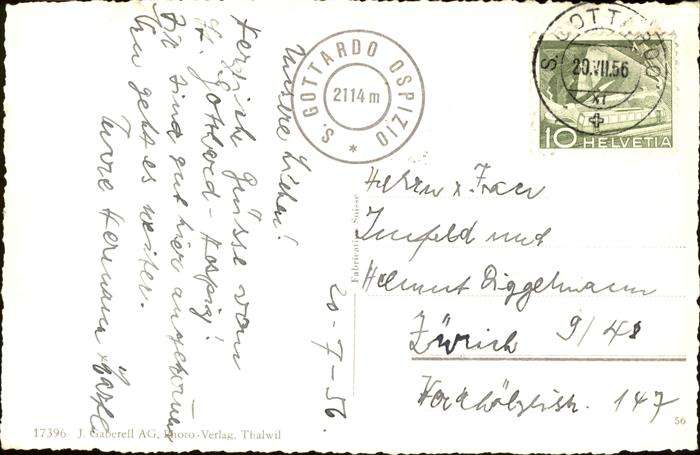 S. GOTTARDO OSPIZIO
2114 m
S. GOTTARDO
20.VII.56
XI
10 HELVETIA
Unsere Lieben!
Herzlich Grüsse vom
St. Gotthard-Hospiz!
Wir sind gut hier angekommen
Nun geht es weiter.
Eure Hermann
20-7-56.
Herrn & Frau
Imfeld und
Helmut Diggelmann
Zürich 9/48
147
Fabrication Suisse
17396 J. Gaberell AG, Photo-Verlag, Thalwil
56